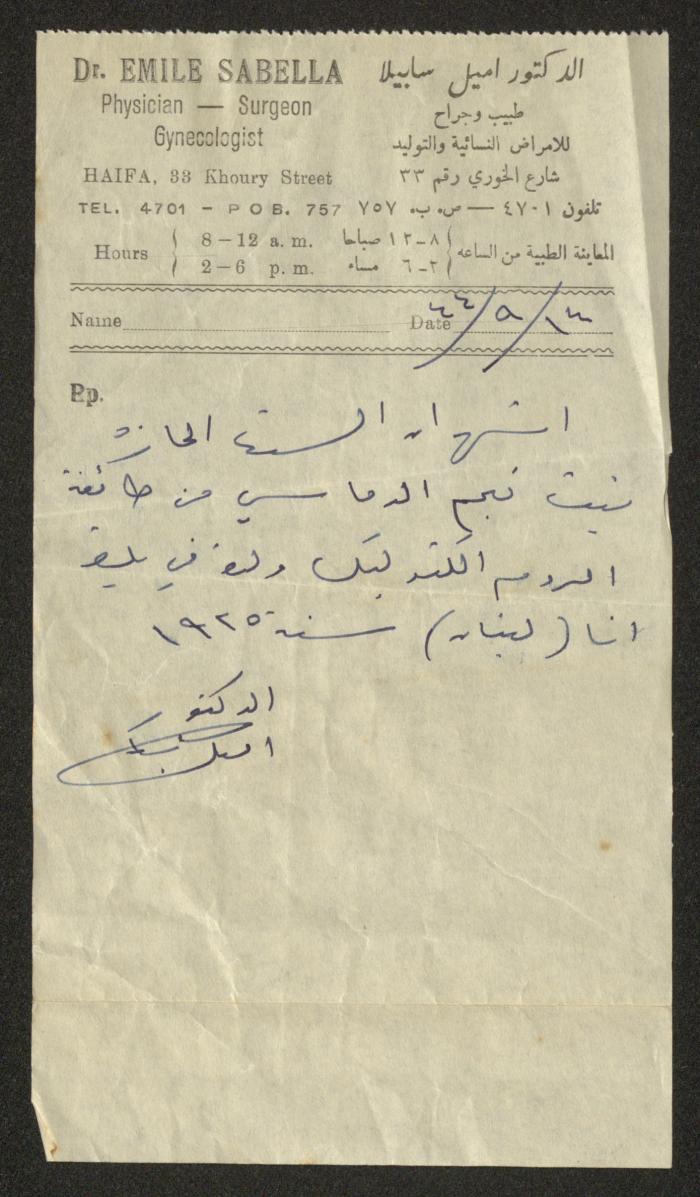 Dr. EMILE SABELLA
الدكتور اميل سابيلا
Physician — Surgeon
طبيب وجراح
Gynecologist
للامراض النسائية والتوليد
HAIFA, 33 Khoury Street
شارع الخوري رقم ٣٣
TEL. 4701 - P O B. 757
تلفون ٤٧٠١ — ص. ب. ٧٥٧
Hours { 8-12 a. m.
2-6 p. m.
المعاينة الطبية من الساعه { ٨-١٢ صباحا
٢-٦ مساء
Name
Date
Rp.
اشهد ان الست
بنت نجم الدماسي من طائفة
الروم الكتوليك ولدت في
انا (لبنان) سنة ١٩٢٥
الدكتور
اميل سابيلا